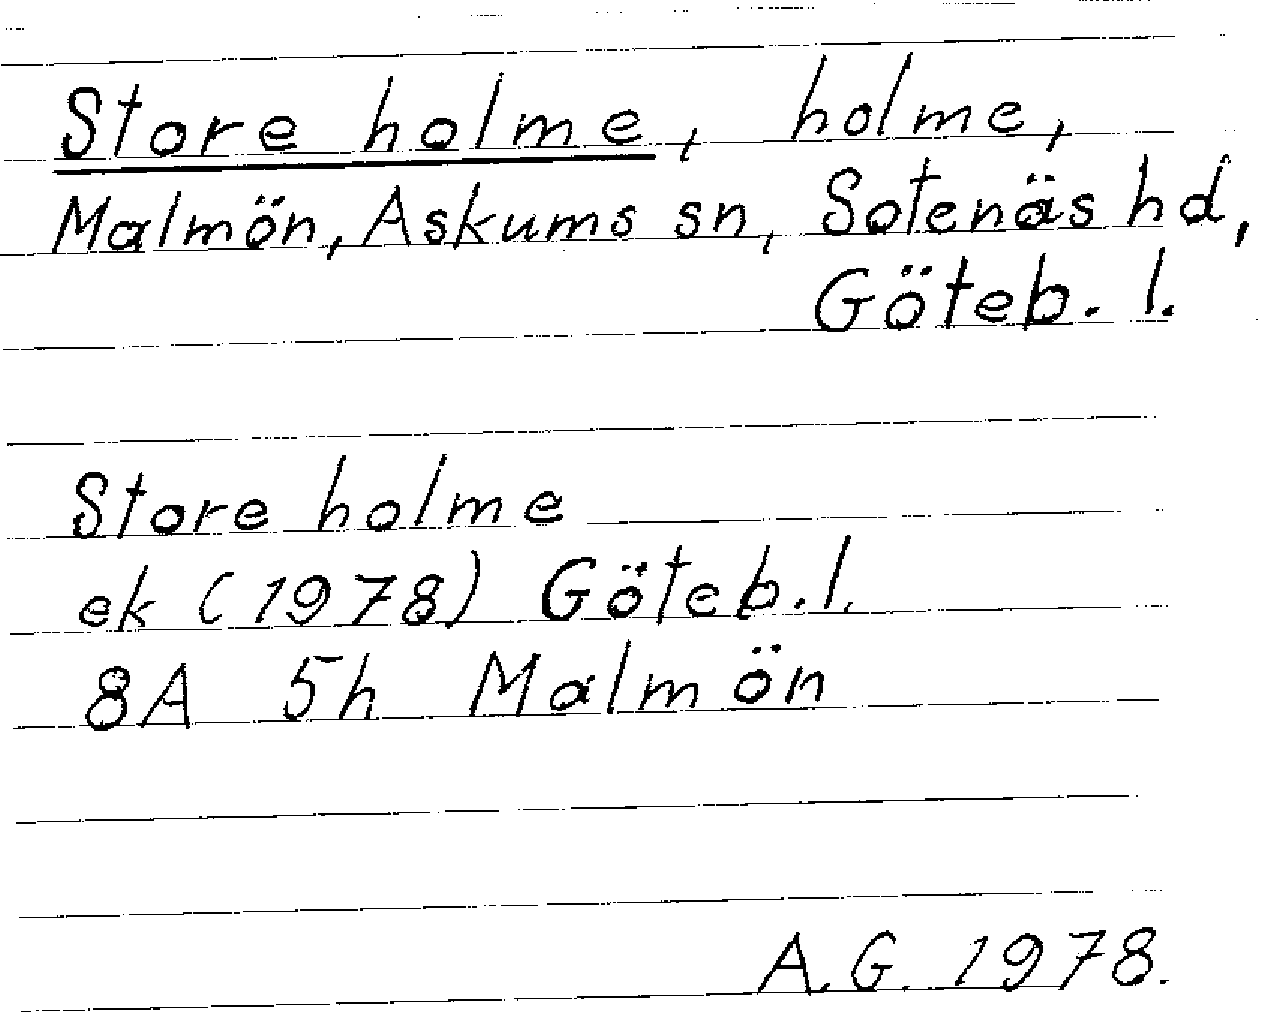 Store holme, holme,
Malmön, Askums sn, Sotenäs hd,
Göteb. l.
Store holme
ek (1978) Göteb. l.
8A 5h Malmön
A.G. 1978.